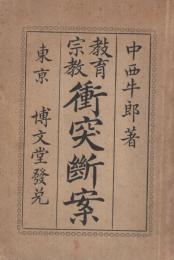 中西牛郎著
教育
宗教
衝突斷案
東京 博文堂發兌